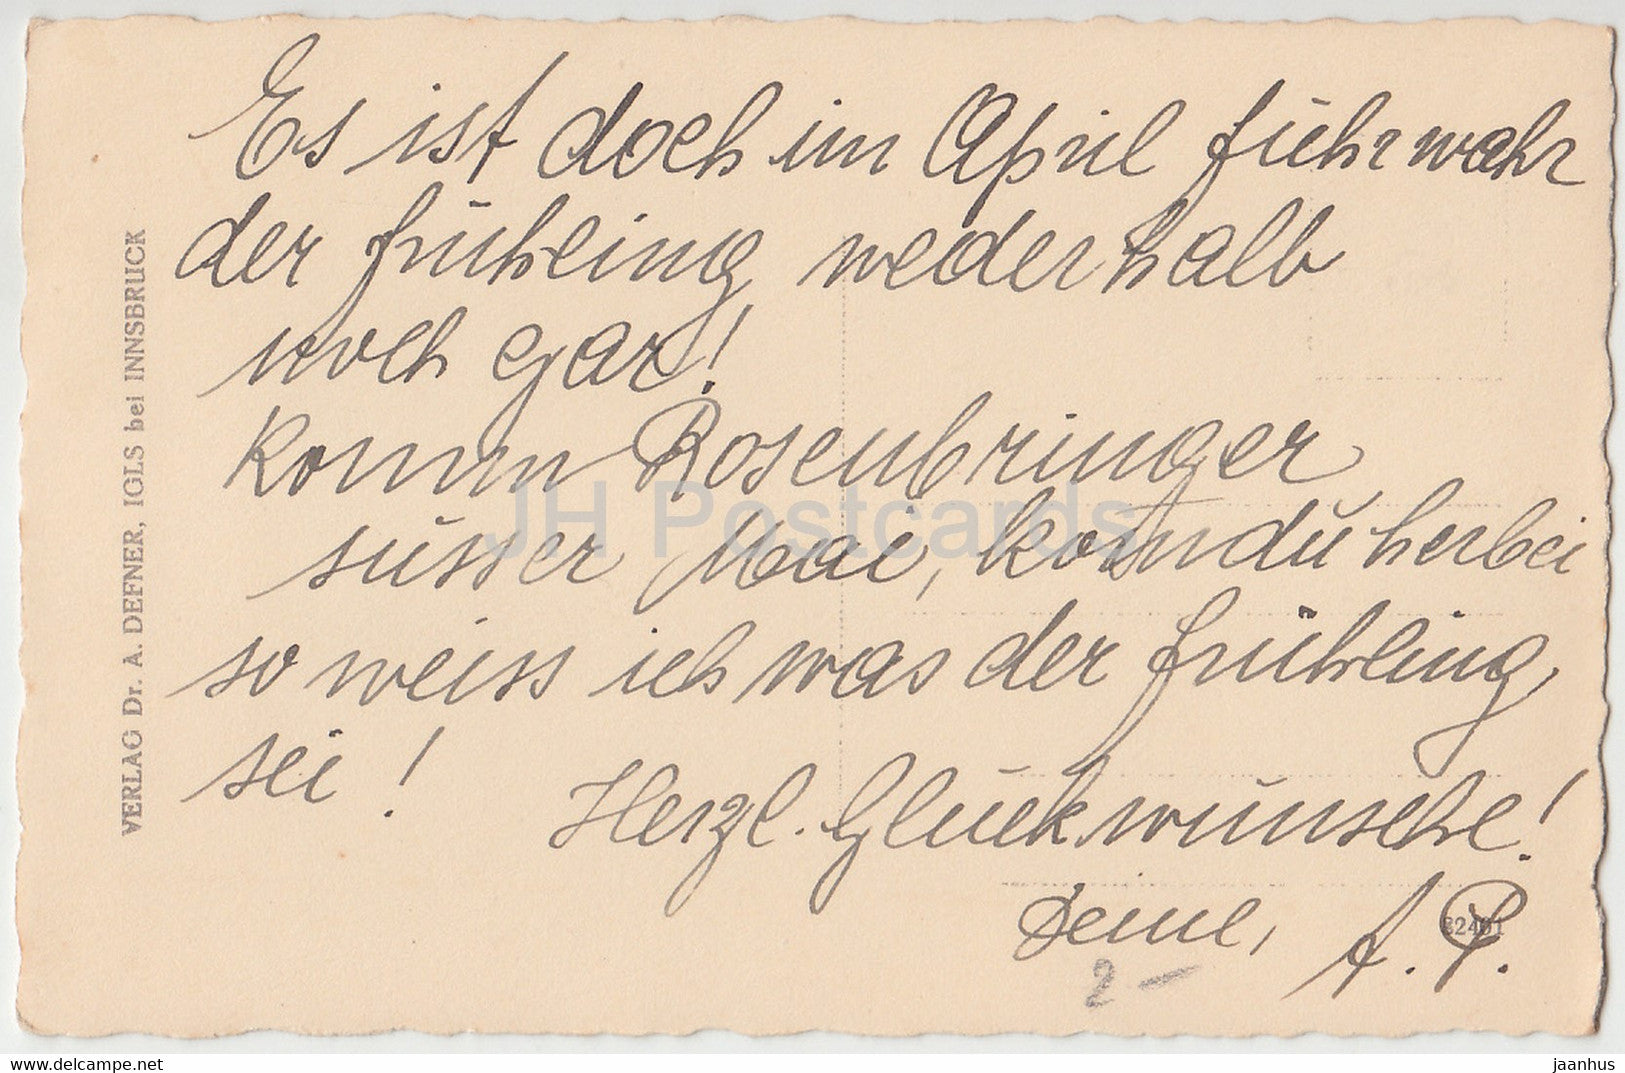 Es ist doch im April führwahr
der Frühling weder halb
noch gar!
Komm Rosenbringer,
süsser Mai, komm du herbei
so weiss ich was der Frühling
sei!
Herzl. Glückwünsche!
Deine, A. P.
2 –
32401
VERLAG Dr. A. DEFNER, IGLS bei INNSBRUCK
JH Postcards
www.delcampe.net
jaanhus